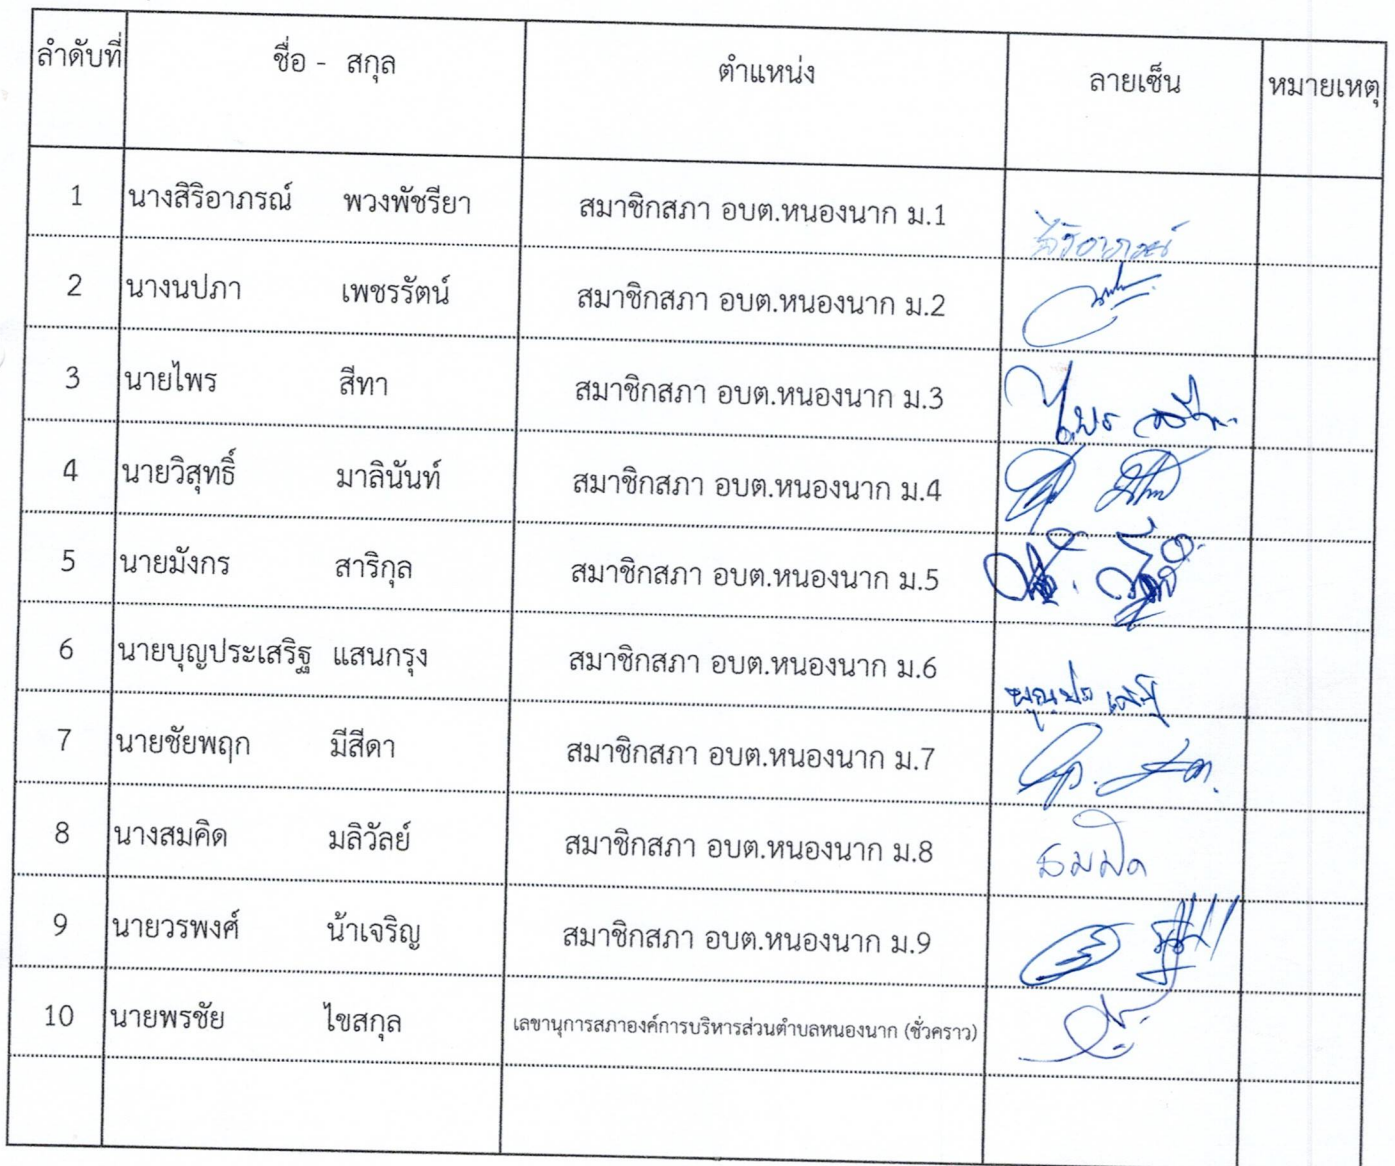 ลำดับที่ ชื่อ - สกุล ตำแหน่ง ลายเซ็น หมายเหตุ
1 นางสิริอาภรณ์ พวงพัชรียา สมาชิกสภา อบต.หนองนาก ม.1 สิริอาภรณ์
2 นางนปภา เพชรรัตน์ สมาชิกสภา อบต.หนองนาก ม.2
3 นายไพร สีทา สมาชิกสภา อบต.หนองนาก ม.3 ไพร สีทา
4 นายวิสุทธิ์ มาลินันท์ สมาชิกสภา อบต.หนองนาก ม.4
5 นายมังกร สาริกุล สมาชิกสภา อบต.หนองนาก ม.5
6 นายบุญประเสริฐ แสนกรุง สมาชิกสภา อบต.หนองนาก ม.6
7 นายชัยพฤก มีสีดา สมาชิกสภา อบต.หนองนาก ม.7
8 นางสมคิด มลิวัลย์ สมาชิกสภา อบต.หนองนาก ม.8 สมคิด
9 นายวรพงศ์ น้าเจริญ สมาชิกสภา อบต.หนองนาก ม.9
10 นายพรชัย ไขสกุล เลขานุการสภาองค์การบริหารส่วนตำบลหนองนาก (ชั่วคราว)